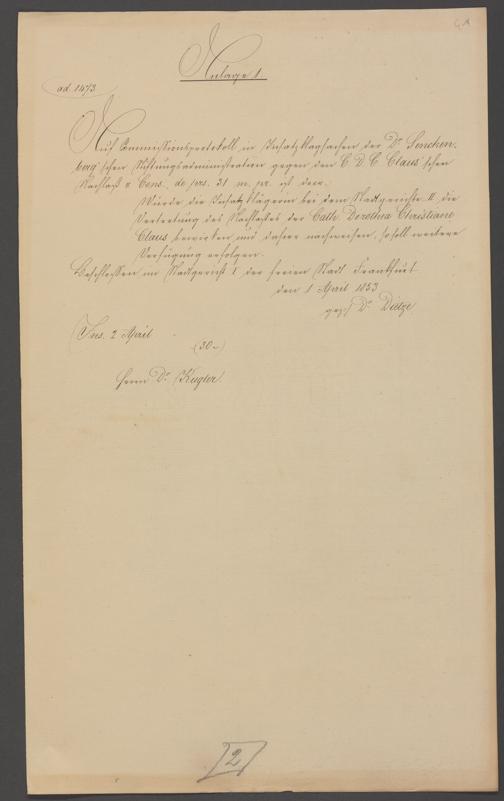 Anlage 1.
ad 1473
Auf Commissionsprotokoll in Insatzklagsachen der Dr. Sencken-
berg'schen Stiftungsadministration gegen den C. D. C. Claus'schen
Nachlaß Cens., de prs. 31 m. pr. ist decr.
Würde die Insatzklägerin bei dem Stadtgerichte II die
Vertretung des Nachlasses der Cath. Dorothea Christiane
Claus bewirken und daher nachweisen, so soll weitere
Verfügung erfolgen.
Beschlossen im Stadtgericht I der freien Stadt Frankfurt
den 1 April 1853
gez. Dr. Dietze
Ins. 2 April
(30-)
Herrn Dr. Kugler.
2